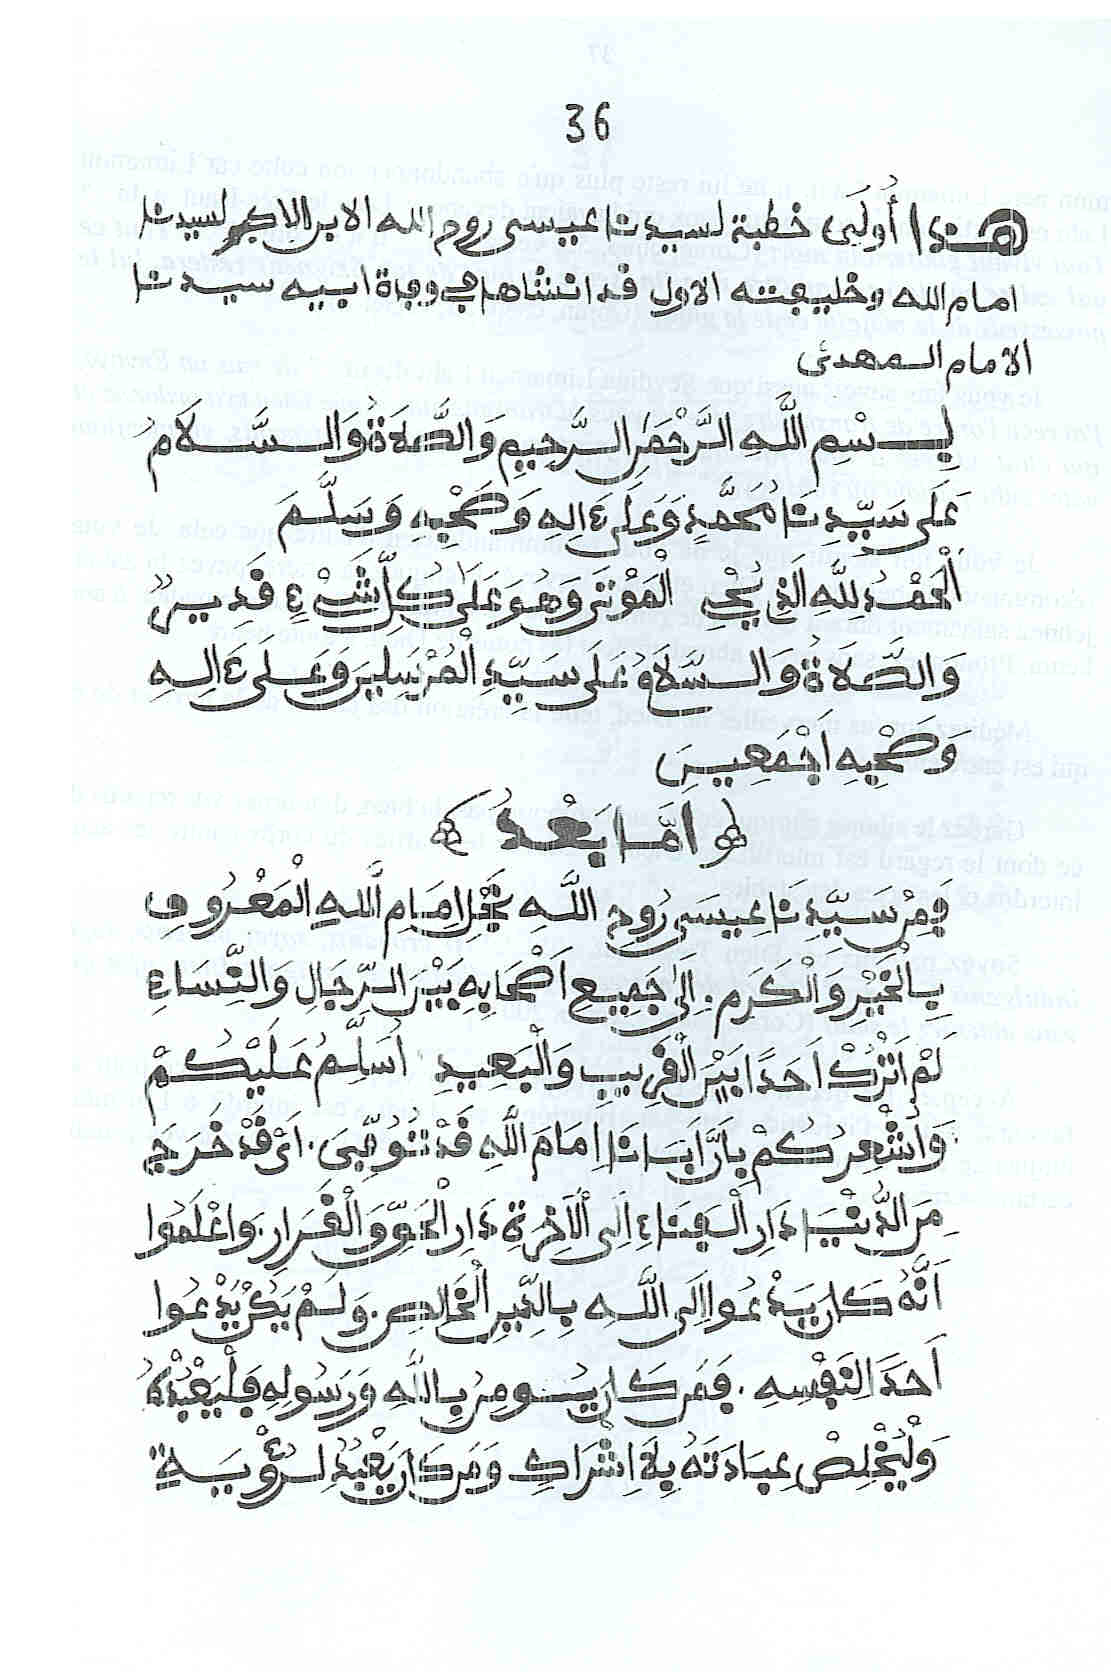 36
هذا أولى خطبة لسيدنا عيسى روح الله الابن الاكبر لسيدنا
امام الله وخليفته الاول قد انشاها في وفاة ابيه سيدنا
الامام المهدى
بِسْمِ اللَّهِ الرَّحْمَنِ الرَّحِيمِ وَالصَّلَاةُ وَالسَّلَامُ
عَلَى سَيِّدِنَا مُحَمَّدٍ وَعَلَى ءَالِهِ وَصَحْبِهِ وَسَلَّمَ
اَلْحَمْدُ لِلَّهِ الذِي يُحْيِ الْمَوْتَى وَهُوَ عَلَى كُلِّ شَيْءٍ قَدِيرٌ
وَالصَّلَاةُ وَالسَّلَامُ عَلَى سَيِّدِ الْمُرْسَلِينَ وَعَلَى ءَالِهِ
وَصَحْبِهِ اَجْمَعِينَ
اَمَّا بَعْدُ
فَمِنْ سَيِّدِنَا عِيسَى رُوحِ اللَّهِ نَجْلِ اِمَامِ اللَّهِ الْمَعْرُوفِ
بِالْخَيْرِ وَالْكَرَمِ. اِلَى جَمِيعِ اَصْحَابِهِ بَيْنَ الرِّجَالِ وَالنِّسَاءِ
لَمْ اَتْرُكْ اَحَدًا بَيْنَ الْقَرِيبِ وَالْبَعِيدِ اُسَلِّمُ عَلَيْكُمْ
وَاُشْعِرُكُمْ بِاَنَّ اَبَانَا اِمَامَ اللَّهِ قَدْ تُوُفِّيَ. اَيْ قَدْ خَرَجَ
مِنَ الدُّنْيَا دَارِ الْفَنَاءِ اِلَى الْآخِرَةِ دَارِ الْحَقِّ وَالْقَرَارِ. وَاعْلَمُوا
اَنَّهُ كَانَ يَدْعُوا اِلَى اللَّهِ بِالدِّينِ الْخَالِصِ. وَلَمْ يَكُنْ يَدْعُوا
اَحَدًا لِنَفْسِهِ. فَمَنْ كَانَ يُومِنُ بِاللَّهِ وَرَسُولِهِ فَلْيَعْبُدْهُ
وَلْيُخْلِصْ عِبَادَتَهُ بِلَا اِشْرَاكٍ وَمَنْ كَانَ يَعْبُدُ لِرُؤْيَةِ